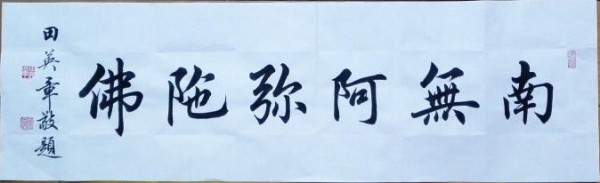 南無阿弥陁佛
田英章敬題